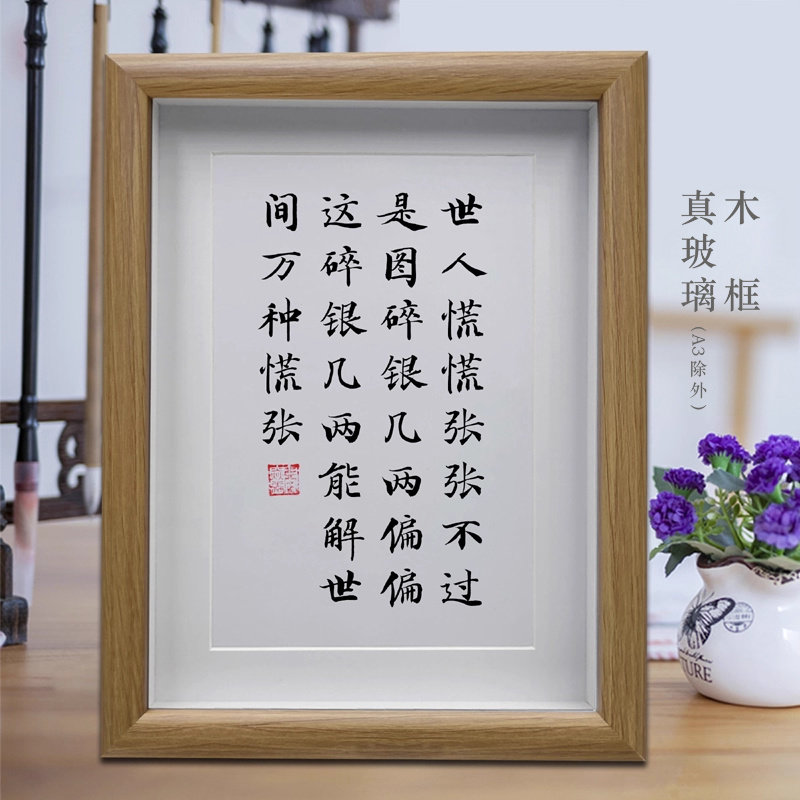 世人慌慌张张不过
是图碎银几两偏偏
这碎银几两能解世
间万种慌张
木框
真玻璃(A3除外)
TURE